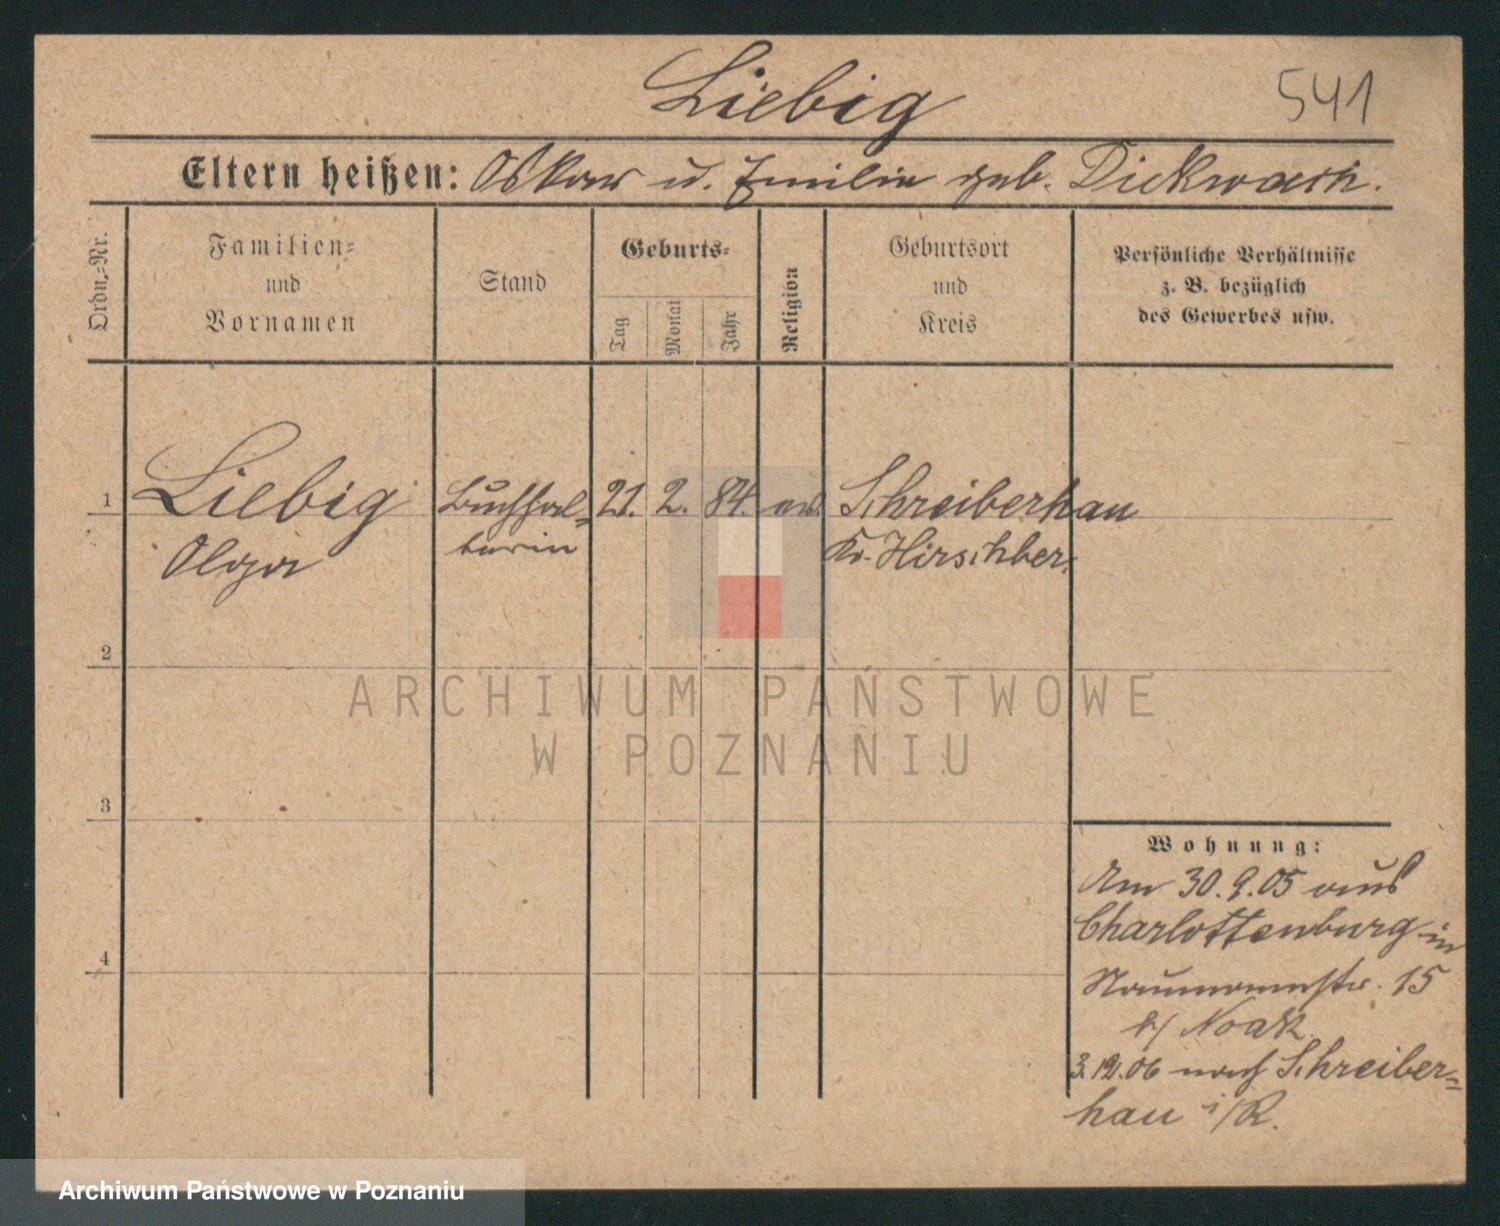 Liebig
541
Eltern heißen: Oskar u. Emilie geb. Dickwach.
Ordn.-Nr.
Familien-
und
Vornamen
Stand
Geburts-
Tag
Monat
Jahr
Religion
Geburtsort
und
Kreis
Persönliche Verhältnisse
z. B. bezüglich
des Gewerbes usw.
1 Liebig Buchhal- 21. 2. 84. ev. Schreiberhau
Olga terin Kr. Hirschber.
2
ARCHIWUM PAŃSTWOWE
W POZNANIU
3
Wohnung:
Am 30.9.05 aus
Charlottenburg in
Naumannstr. 15
b/ Noak
4
3.12.06 nach Schreiber-
hau i/R.
Archiwum Państwowe w Poznaniu